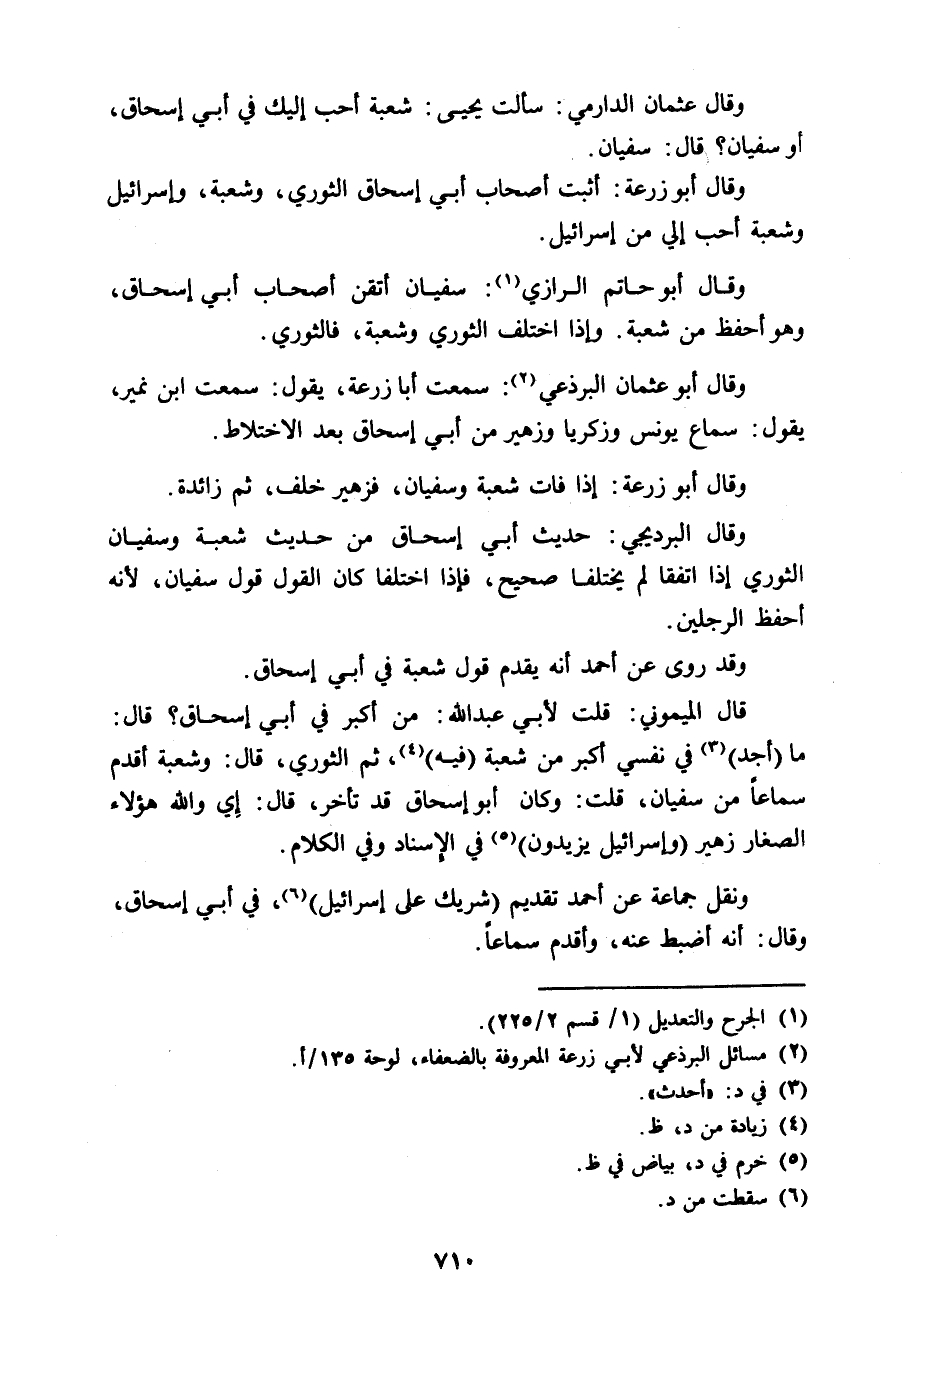 وقال عثمان الدارمي: سألت يحيى: شعبة أحب إليك في أبي إسحاق،
أو سفيان؟ قال: سفيان.
وقال أبو زرعة: أثبت أصحاب أبي إسحاق الثوري، وشعبة، وإسرائيل
وشعبة أحب إلي من إسرائيل.
وقال أبو حاتم الرازي(١): سفيان أتقن أصحاب أبي إسحاق،
وهو أحفظ من شعبة. وإذا اختلف الثوري وشعبة، فالثوري.
وقال أبو عثمان البرذعي(٢): سمعت أبا زرعة، يقول: سمعت ابن نمير،
يقول: سماع يونس وزكريا وزهير من أبي إسحاق بعد الاختلاط.
وقال أبو زرعة: إذا فات شعبة وسفيان، فزهير خلف، ثم زائدة.
وقال البرديجي: حديث أبي إسحاق من حديث شعبة وسفيان
الثوري إذا اتفقا لم يختلفا صحيح، فإذا اختلفا كان القول قول سفيان، لأنه
أحفظ الرجلين.
وقد روى عن أحمد أنه يقدم قول شعبة في أبي إسحاق.
قال الميموني: قلت لأبي عبدالله: من أكبر في أبي إسحاق؟ قال:
ما (أجد)(٣) في نفسي أكبر من شعبة (فيه)(٤)، ثم الثوري، قال: وشعبة أقدم
سماعاً من سفيان، قلت: وكان أبو إسحاق قد تأخر، قال: إي والله هؤلاء
الصغار زهير (وإسرائيل يزيدون)(٥) في الإسناد وفي الكلام.
ونقل جماعة عن أحمد تقديم (شريك على إسرائيل)(٦)، في أبي إسحاق،
وقال: أنه أضبط عنه، وأقدم سماعاً.
(١) الجرح والتعديل (١/ قسم ٢/٢٢٥).
(٢) مسائل البرذعي لأبي زرعة المعروفة بالضعفاء، لوحة ١٣٥/أ.
(٣) في د: «أحدث».
(٤) زيادة من د، ظ.
(٥) خرم في د، بياض في ظ.
(٦) سقطت من د.
٧١٠